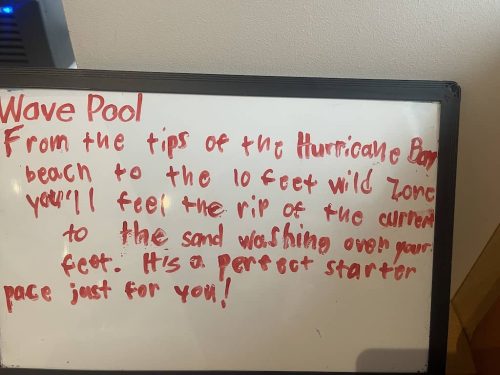 Wave Pool
From the tips of the Hurricane Bay
beach to the 10 feet wild zone
you'll feel the rip of the current
to the sand washing over your
feet. It's a perfect starter
pace just for you!